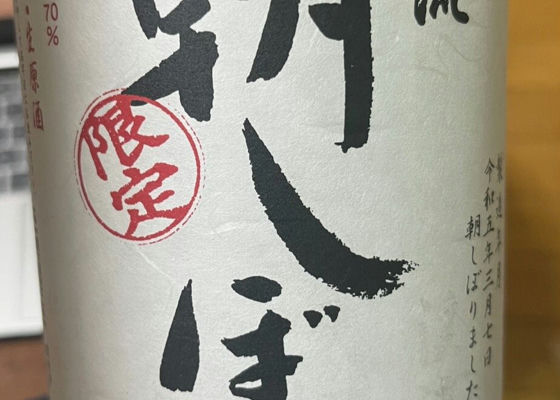 流
朝しぼ
限定
70%
生原酒
製造年月
令和五年三月七日
朝しぼりました